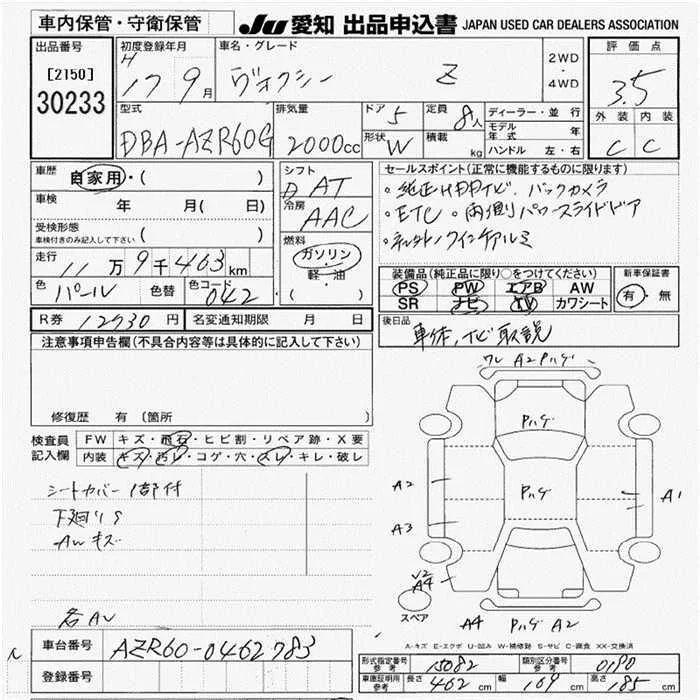 車内保管・守衛保管
JU 愛知 出品申込書 JAPAN USED CAR DEALERS ASSOCIATION
出品番号
[2150]
30233
初度登録年月
H
17 9月
車名・グレード
ヴォクシー Z
2WD
・
4WD
評価点
3.5
外装 内装
C C
型式
DBA-AZR60G
排気量
2000cc
ドア 5
形状 W
定員 8人
積載 kg
ディーラー・並行
モデル年式 年
ハンドル 左・右
車歴 自家用・( )
車検 年 月( 日)
受検形態
車検付きのみ記入して下さい ( )
走行 11万9千463km
色 パール 色替 色コード 042
シフト
D AT
冷房
AAC
燃料
ガソリン
・
軽・油
( )
セールスポイント(正常に機能するものに限ります)
。純正HDDナビ、バックカメラ
。ETC 。両側パワースライドドア
装備品(純正品に限り○をつけてください)
PS PW エアB AW
SR ナビ TV カワシート
新車保証書
有・無
R券 12930円 名変通知期限 月 日
後日品
車体、ナビ取説
注意事項申告欄(不具合内容等は具体的に記入して下さい)
修復歴 有 〔箇所
検査員
記入欄
FW キズ・飛石・ヒビ割・リペア跡・X要
内装 キズ・汚レ・コゲ・穴・スレ・キレ・破レ
シートカバー1部付
下廻りS
AWキズ
各AU
ワレ A2 Pハゲ
Pハゲ
Pハゲ
A2
A1
A3
√2
A4
スペア
A4 Pハゲ A2
A-キズ E-エクボ U-凹み W-補修跡 S-サビ C-腐食 XX-交換済
車台番号 AZR60-0462783
登録番号
形式指定番号
参考
15082
類別区分番号
参考
0190
車庫証明用
参考
長さ 462cm 幅 169cm 高さ 185cm